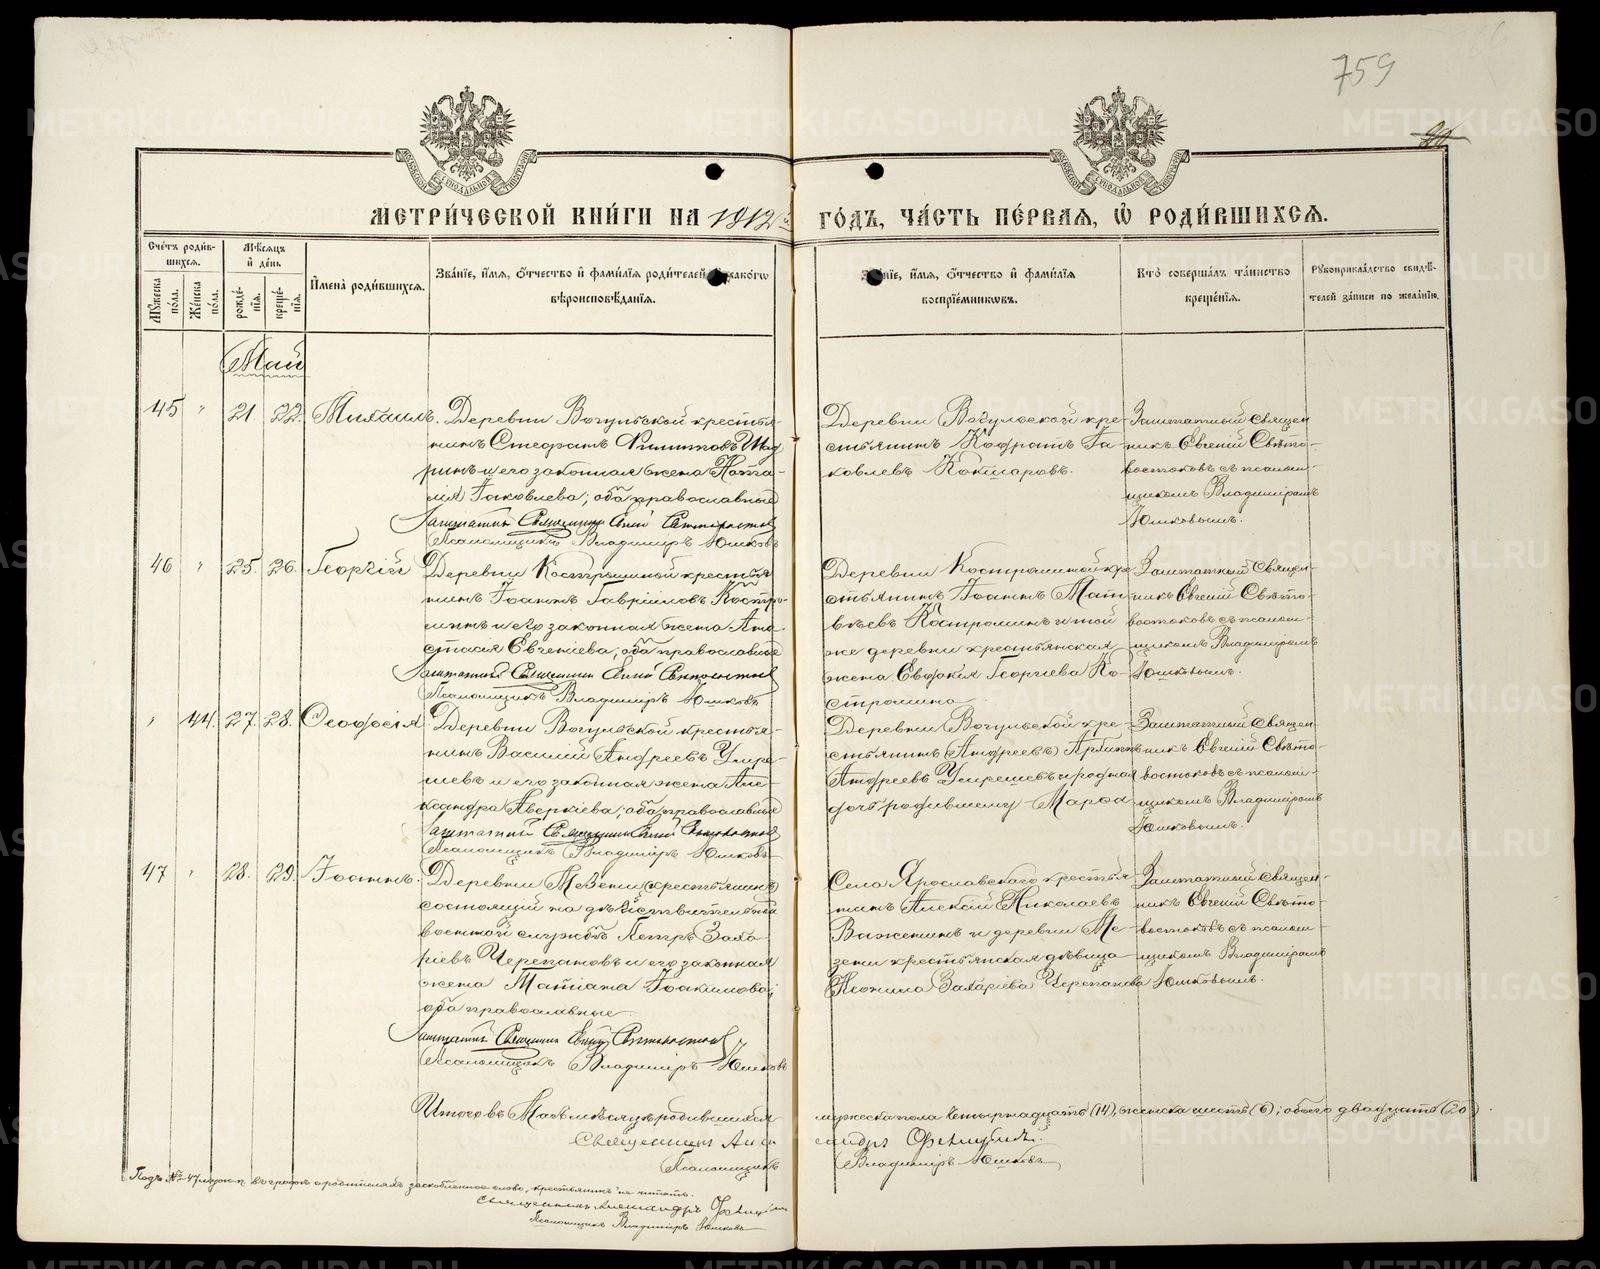 759
МЕТРИ́ЧЕСКОЙ КНИ́ГИ НА 1912 ГО́ДЪ, ЧА́СТЬ ПЕ́РВАЯ, Ѡ҆ РОДИ́ВШИХСЯ.
Сче́тъ роди́в-
шихся.
Мѣ́сяцъ
и҆ де́нь
Мꙋ́жеска по́ла.
Же́нска по́ла.
рожде́нїѧ.
креще́нїѧ.
И҆мена̀ роди́вшихся.
Зва́нїе, и҆́мѧ, ѻ҆́тчество и҆ фами́лїѧ роди́телей како́гѡ
вѣроисповѣ́данїѧ.
Зва́нїе, и҆́мѧ, ѻ҆́тчество и҆ фами́лїѧ
воспрїе́мникѡвъ.
Кто̀ соверша́лъ та́инство
креще́нїѧ.
Рꙋкоприкла́дство свидѣ́-
телей за́писи по жела́нїю.
Май
45 " 21. 22. Михаилъ. Деревни Вогульской крестья-
нинъ Стефанъ
и его законная жена Ната-
лія Іаковлева; оба православные
Заштатный Священникъ Евгеній Свѣтовостоковъ
Псаломщикъ Владиміръ Юшковъ
Деревни Вогульской кре-
стьянинъ Кодратъ Іа-
ковлевъ Кокшаровъ.
Заштатный Священ-
никъ Евгеній Свѣто-
востоковъ съ псалом-
щикомъ Владиміромъ
Юшковымъ.
46 " 25. 26. Георгій Деревни Костроминой крестья-
нинъ Іоаннъ Гавріиловъ Костро-
минъ и его законная жена Ана-
стасія Евгеніева; оба православные
Заштатный Священникъ Евгеній Свѣтовостоковъ
Псаломщикъ Владиміръ Юшковъ
Деревни Костроминой кре-
стьянинъ Іоаннъ Мат-
вѣевъ Костроминъ и той
же деревни крестьянская
жена Евдокія Георгіева Ко-
стромина
Заштатный Священ-
никъ Евгеній Свѣто-
востоковъ съ псалом-
щикомъ Владиміромъ
Юшковымъ.
" 44. 27. 28. Ѳеодосія Деревни Вогульской крестья-
нинъ Василій Андреевъ
и его законная жена Але-
ксандра Аверкіева; оба православные
Заштатный Священникъ Евгеній Свѣтовостоковъ
Псаломщикъ Владиміръ Юшковъ
Деревни Вогульской кре-
стьянинъ (Андреевъ)
Андреевъ и родная
дочь родившему Марѳа
Заштатный Священ-
никъ Евгеній Свѣто-
востоковъ съ псалом-
щикомъ Владиміромъ
Юшковымъ.
47 " 28. 29. Іоаннъ. Деревни Мезени (крестьянинъ)
состоящій на дѣйствительной
военной службѣ Петръ Заха-
ріевъ Черепановъ и его законная
жена Татіана Іоакимова;
оба православные.
Заштатный Священникъ Евгеній Свѣтовостоковъ
Псаломщикъ Владиміръ Юшковъ
Села Ярославскаго крестья-
нинъ Алексій Николаевъ
Важенинъ и деревни Ме-
зени крестьянская дѣвица
Неонила Захаріева Черепанова
Заштатный Священ-
никъ Евгеній Свѣто-
востоковъ съ псалом-
щикомъ Владиміромъ
Юшковымъ.
Итого въ Маѣ мѣсяцѣ родившихся мужеска пола четырнадцать (14), женска шесть (6); обоего двадцать (20)
Священникъ Александръ
Псаломщикъ Владиміръ Юшковъ
Подъ № 47 муж. п. въ графѣ о родителяхъ заскобленное слово "крестьянинъ" не читать.
Священникъ Александръ
Псаломщикъ Владиміръ Юшковъ
METRIKI.GASO-URAL.RU